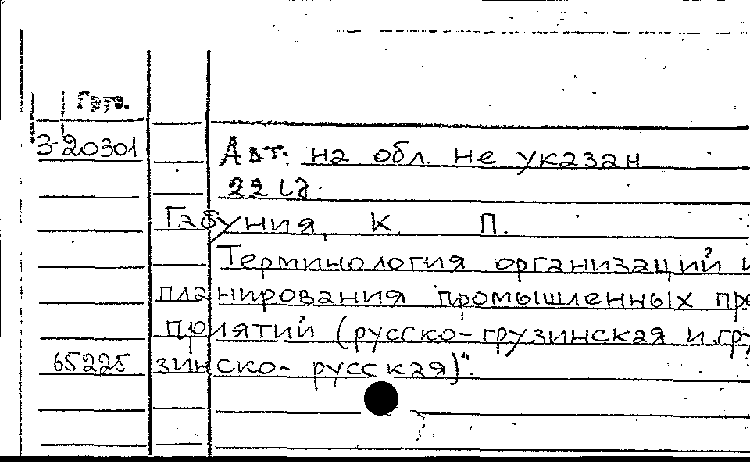 Груз.
3-20301
Авт. на обл. не указан
Габуния, К. П.
Терминология организаций и
планирования промышленных пре
приятий (русско-грузинская и гру
65225 зинско-русская)".